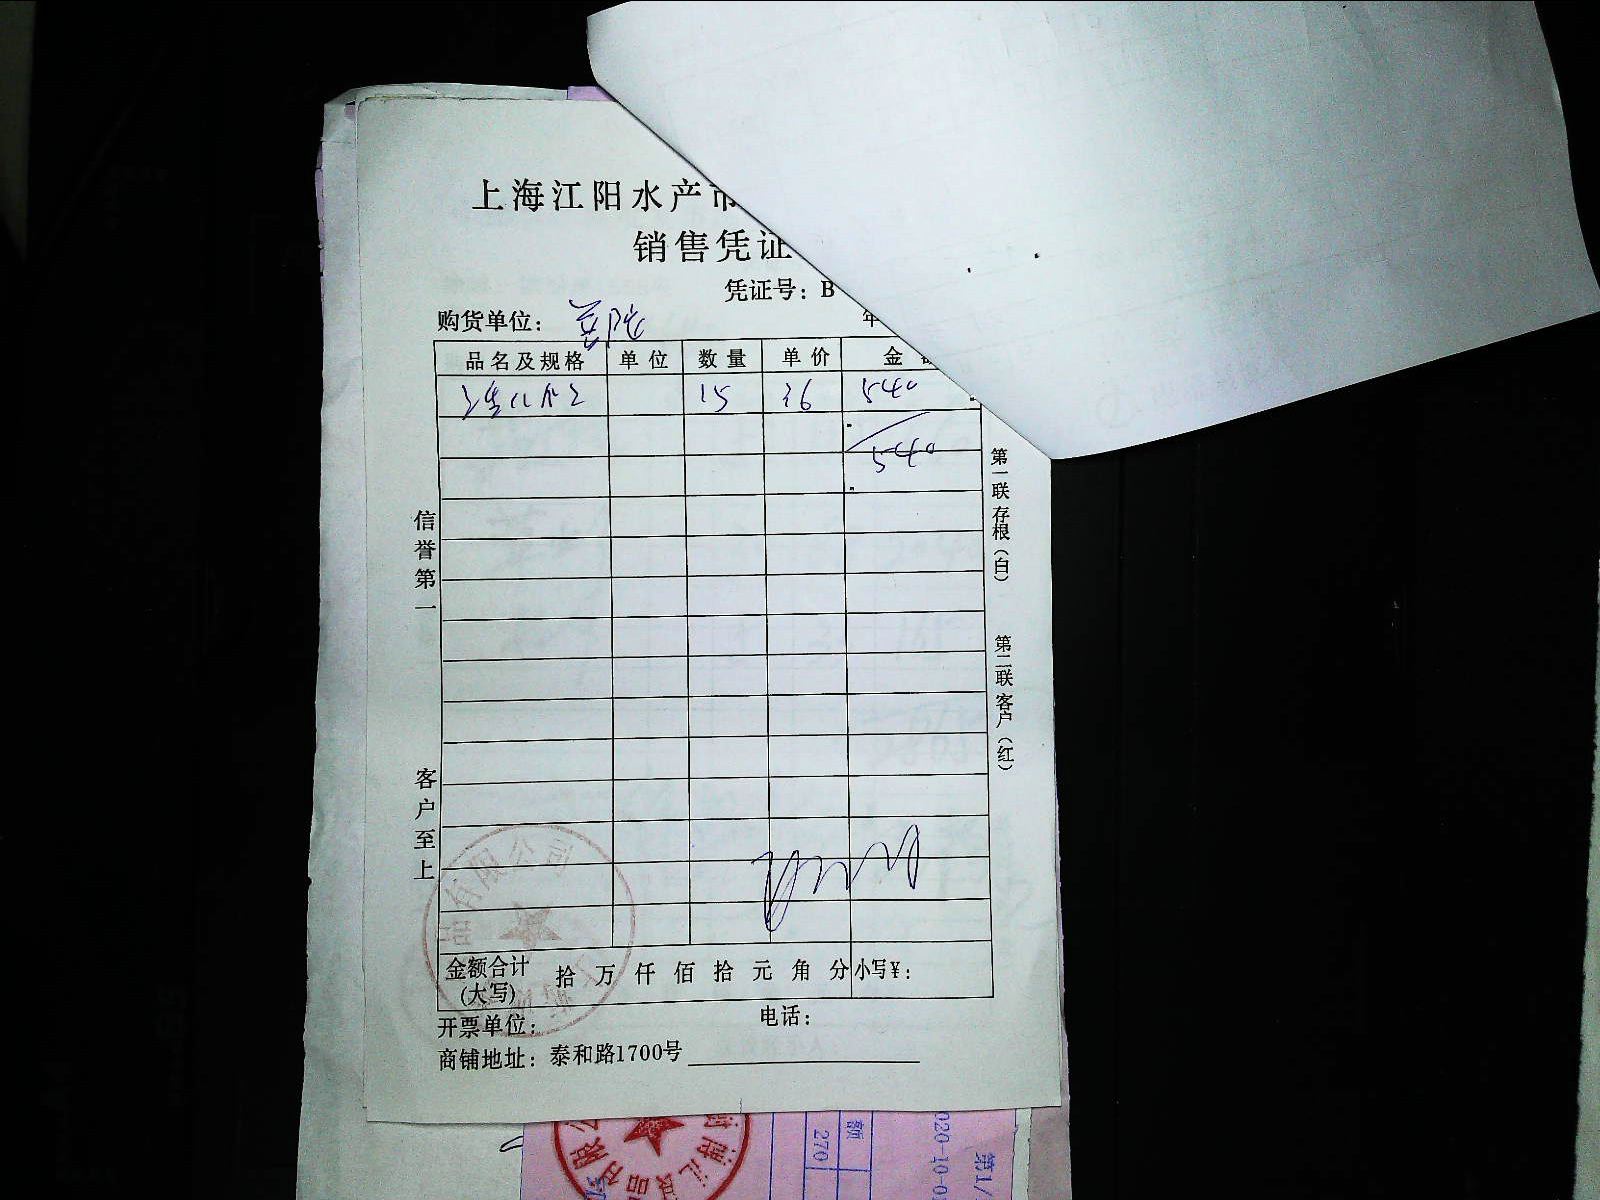 上海江阳水产市
销售凭证
凭证号：B
购货单位：
年
品名及规格 单位 数量 单价 金
15 36 540
540
信誉第一
客户至上
第一联存根（白）
第二联客户（红）
金额合计（大写） 拾 万 仟 佰 拾 元 角 分 小写￥：
开票单位： 电话：
商铺地址：泰和路1700号
额
270
020-10-0
第1/